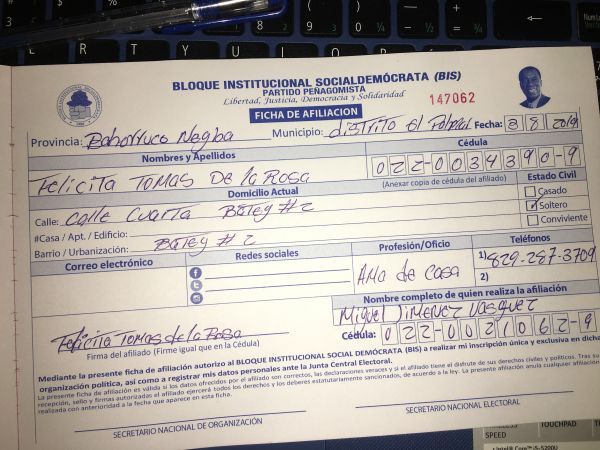 BLOQUE INSTITUCIONAL SOCIALDEMÓCRATA (BIS)
PARTIDO PEÑAGOMISTA
Libertad, Justicia, Democracia y Solidaridad
FICHA DE AFILIACION
147062
Provincia: Bahorruco Negiba Municipio: distrito el Palmar Fecha: 3 8 2019
Nombres y Apellidos
Cédula
Felicita Tomas De la Rosa
022-0034390-9
Domicilio Actual
(Anexar copia de cédula del afiliado)
Estado Civil
Calle: Calle Cuarta Batey #2
Casado
#Casa / Apt. / Edificio:
Soltero
Barrio / Urbanización: Batey #2
Conviviente
Correo electrónico
Redes sociales
Profesión/Oficio
Teléfonos
Ama de casa
1) 829-287-3709
2)
Nombre completo de quien realiza la afiliación
Miguel Jimenez Vasquez
Felicita Tomas de la Rosa
Cédula: 022-0021062-9
Firma del afiliado (Firme igual que en la Cédula)
Mediante la presente ficha de afiliación autorizo al BLOQUE INSTITUCIONAL SOCIAL DEMÓCRATA (BIS) a realizar mi inscripción única y exclusiva en dicha
organización política, así como a registrar mis datos personales ante la Junta Central Electoral.
La presente ficha de afiliación es válida si los datos ofrecidos por el afiliado son correctos, las declaraciones veraces y si el afiliado tiene el disfrute de sus derechos civiles y políticos. Tras su
recepción, sello y firmas autorizadas el afiliado ejercerá todos los derechos y los deberes estatutariamente sancionados, de acuerdo a la ley. La presente afiliación anula cualquier afiliación
realizada con anterioridad a la fecha que aparece en esta ficha.
SECRETARIO NACIONAL DE ORGANIZACIÓN
SECRETARIO NACIONAL ELECTORAL
SPEED
TOUCHPAD
Intel® Core™ i5-5200U